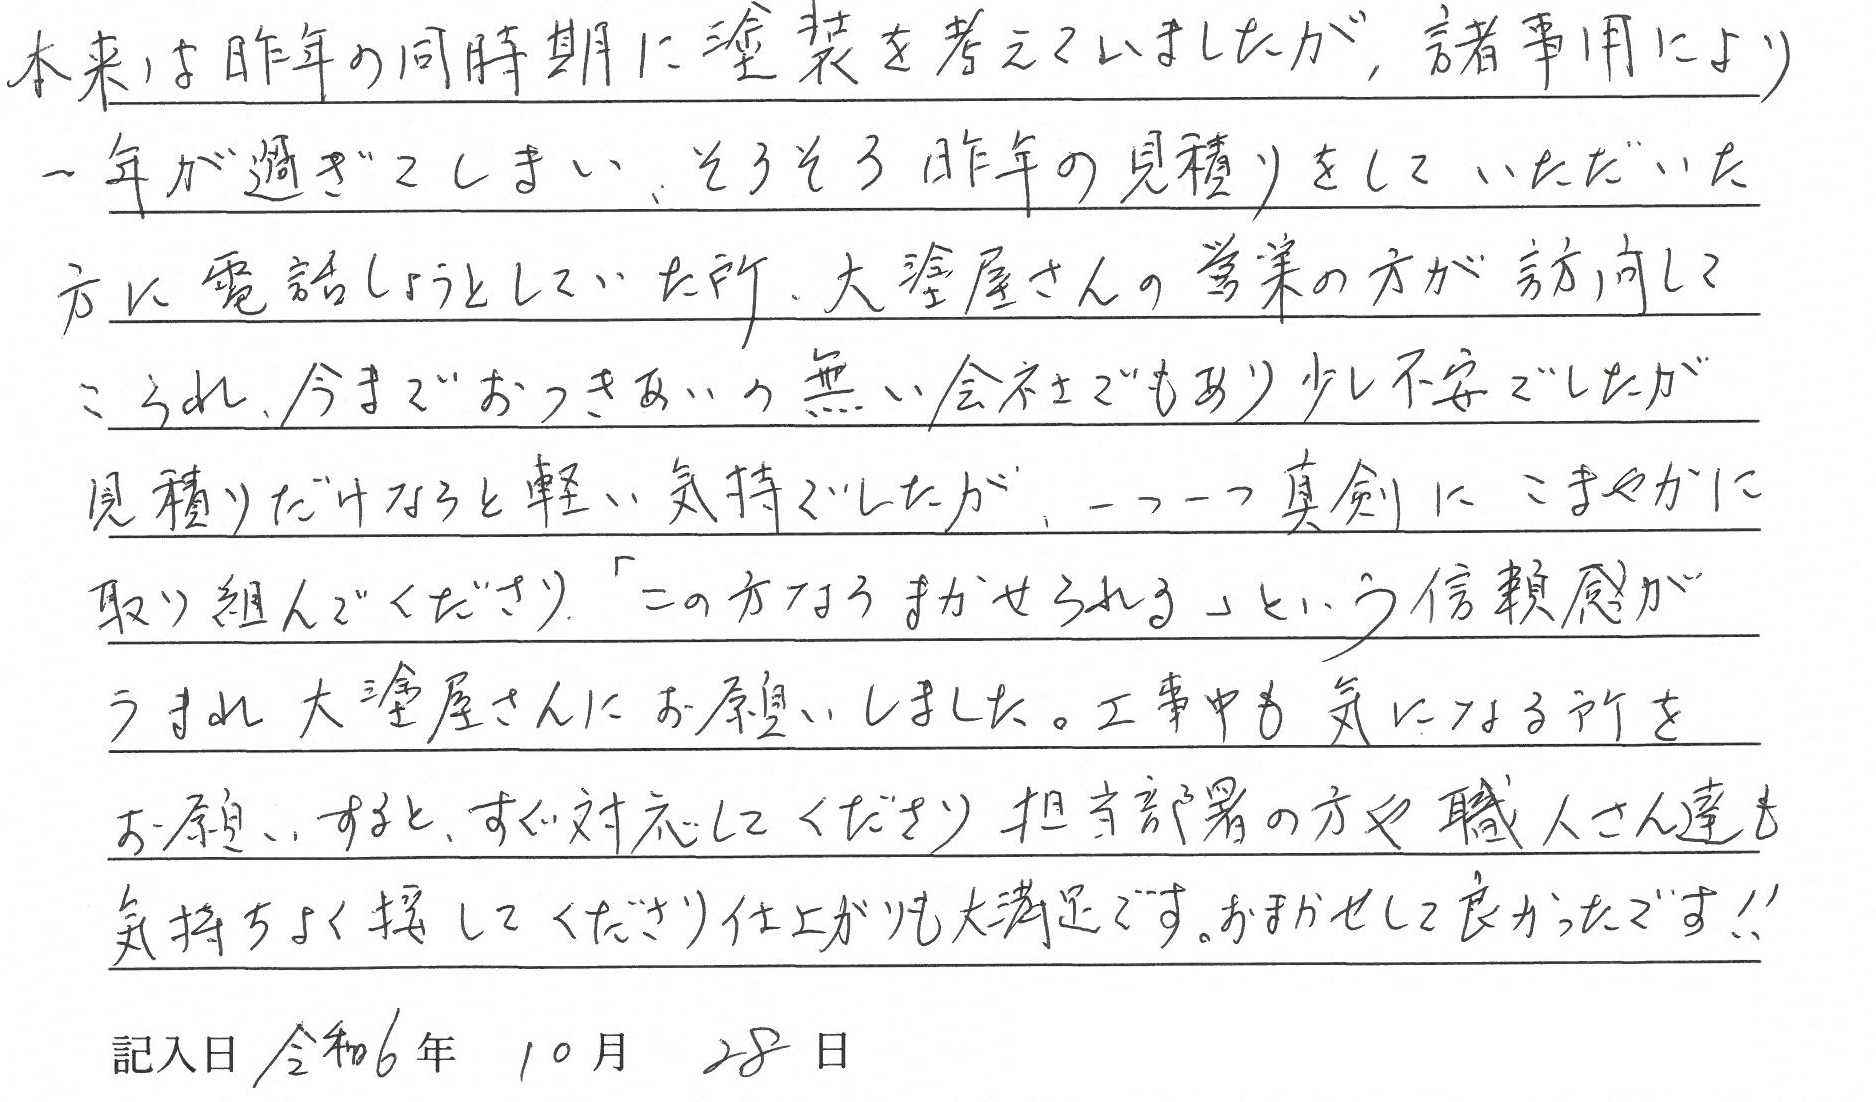 本来は昨年の同時期に塗装を考えていましたが、諸事用により
一年が過ぎてしまい、そろそろ昨年の見積りをしていただいた
方に電話しようとしていた所、大塗屋さんの営業の方が訪問して
こられ、今までおつきあいの無い会社でもあり少し不安でしたが
見積りだけならと軽い気持でしたが、一つ一つ真剣にこまやかに
取り組んでくださり、「この方ならまかせられる」という信頼感が
うまれ大塗屋さんにお願いしました。工事中も気になる所を
お願いすると、すぐ対応してくださり担当部署の方や職人さん達も
気持ちよく接してくださり仕上がりも大満足です。おまかせして良かったです!!
記入日 令和6年 10月 28日